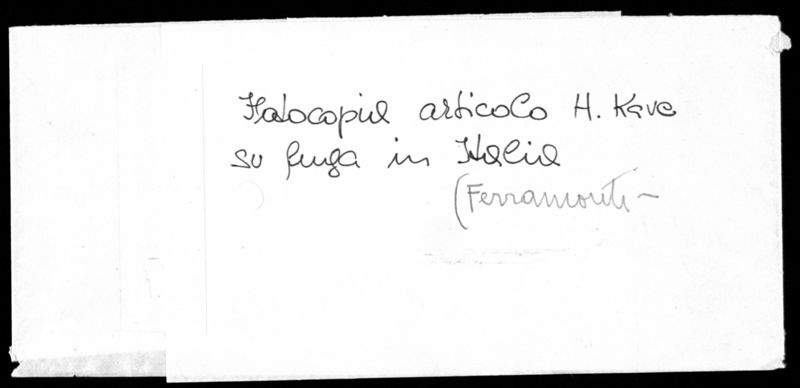 Fotocopie articolo H. Kave
su fuga in Italia
(Ferramonti -